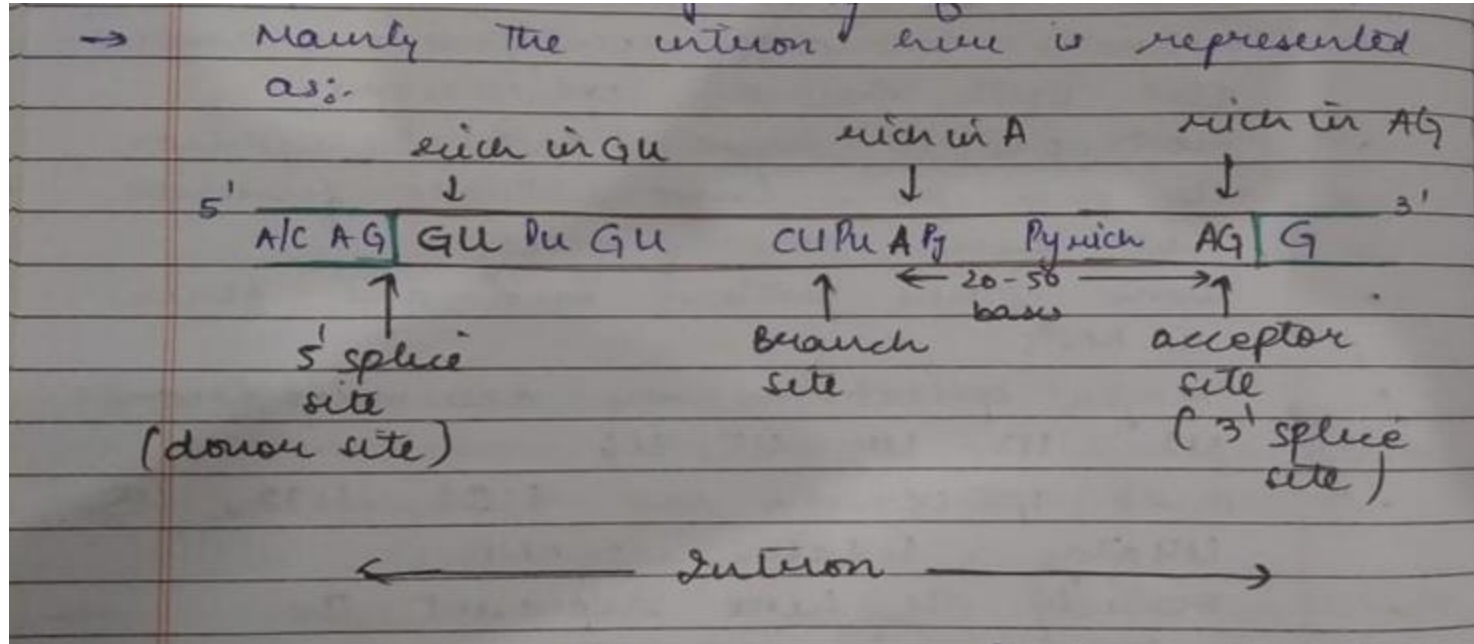 → Mainly the intron here is represented
as:-
rich in GU rich in A rich in AG
↓ ↓ ↓
5' A/C AG GU Pu GU CU Pu A Py Py rich AG G 3'
↑ ↑ ← 20-50 → ↑
bases
5' splice Branch acceptor
site site site
(donor site) (3' splice
site)
← Intron →